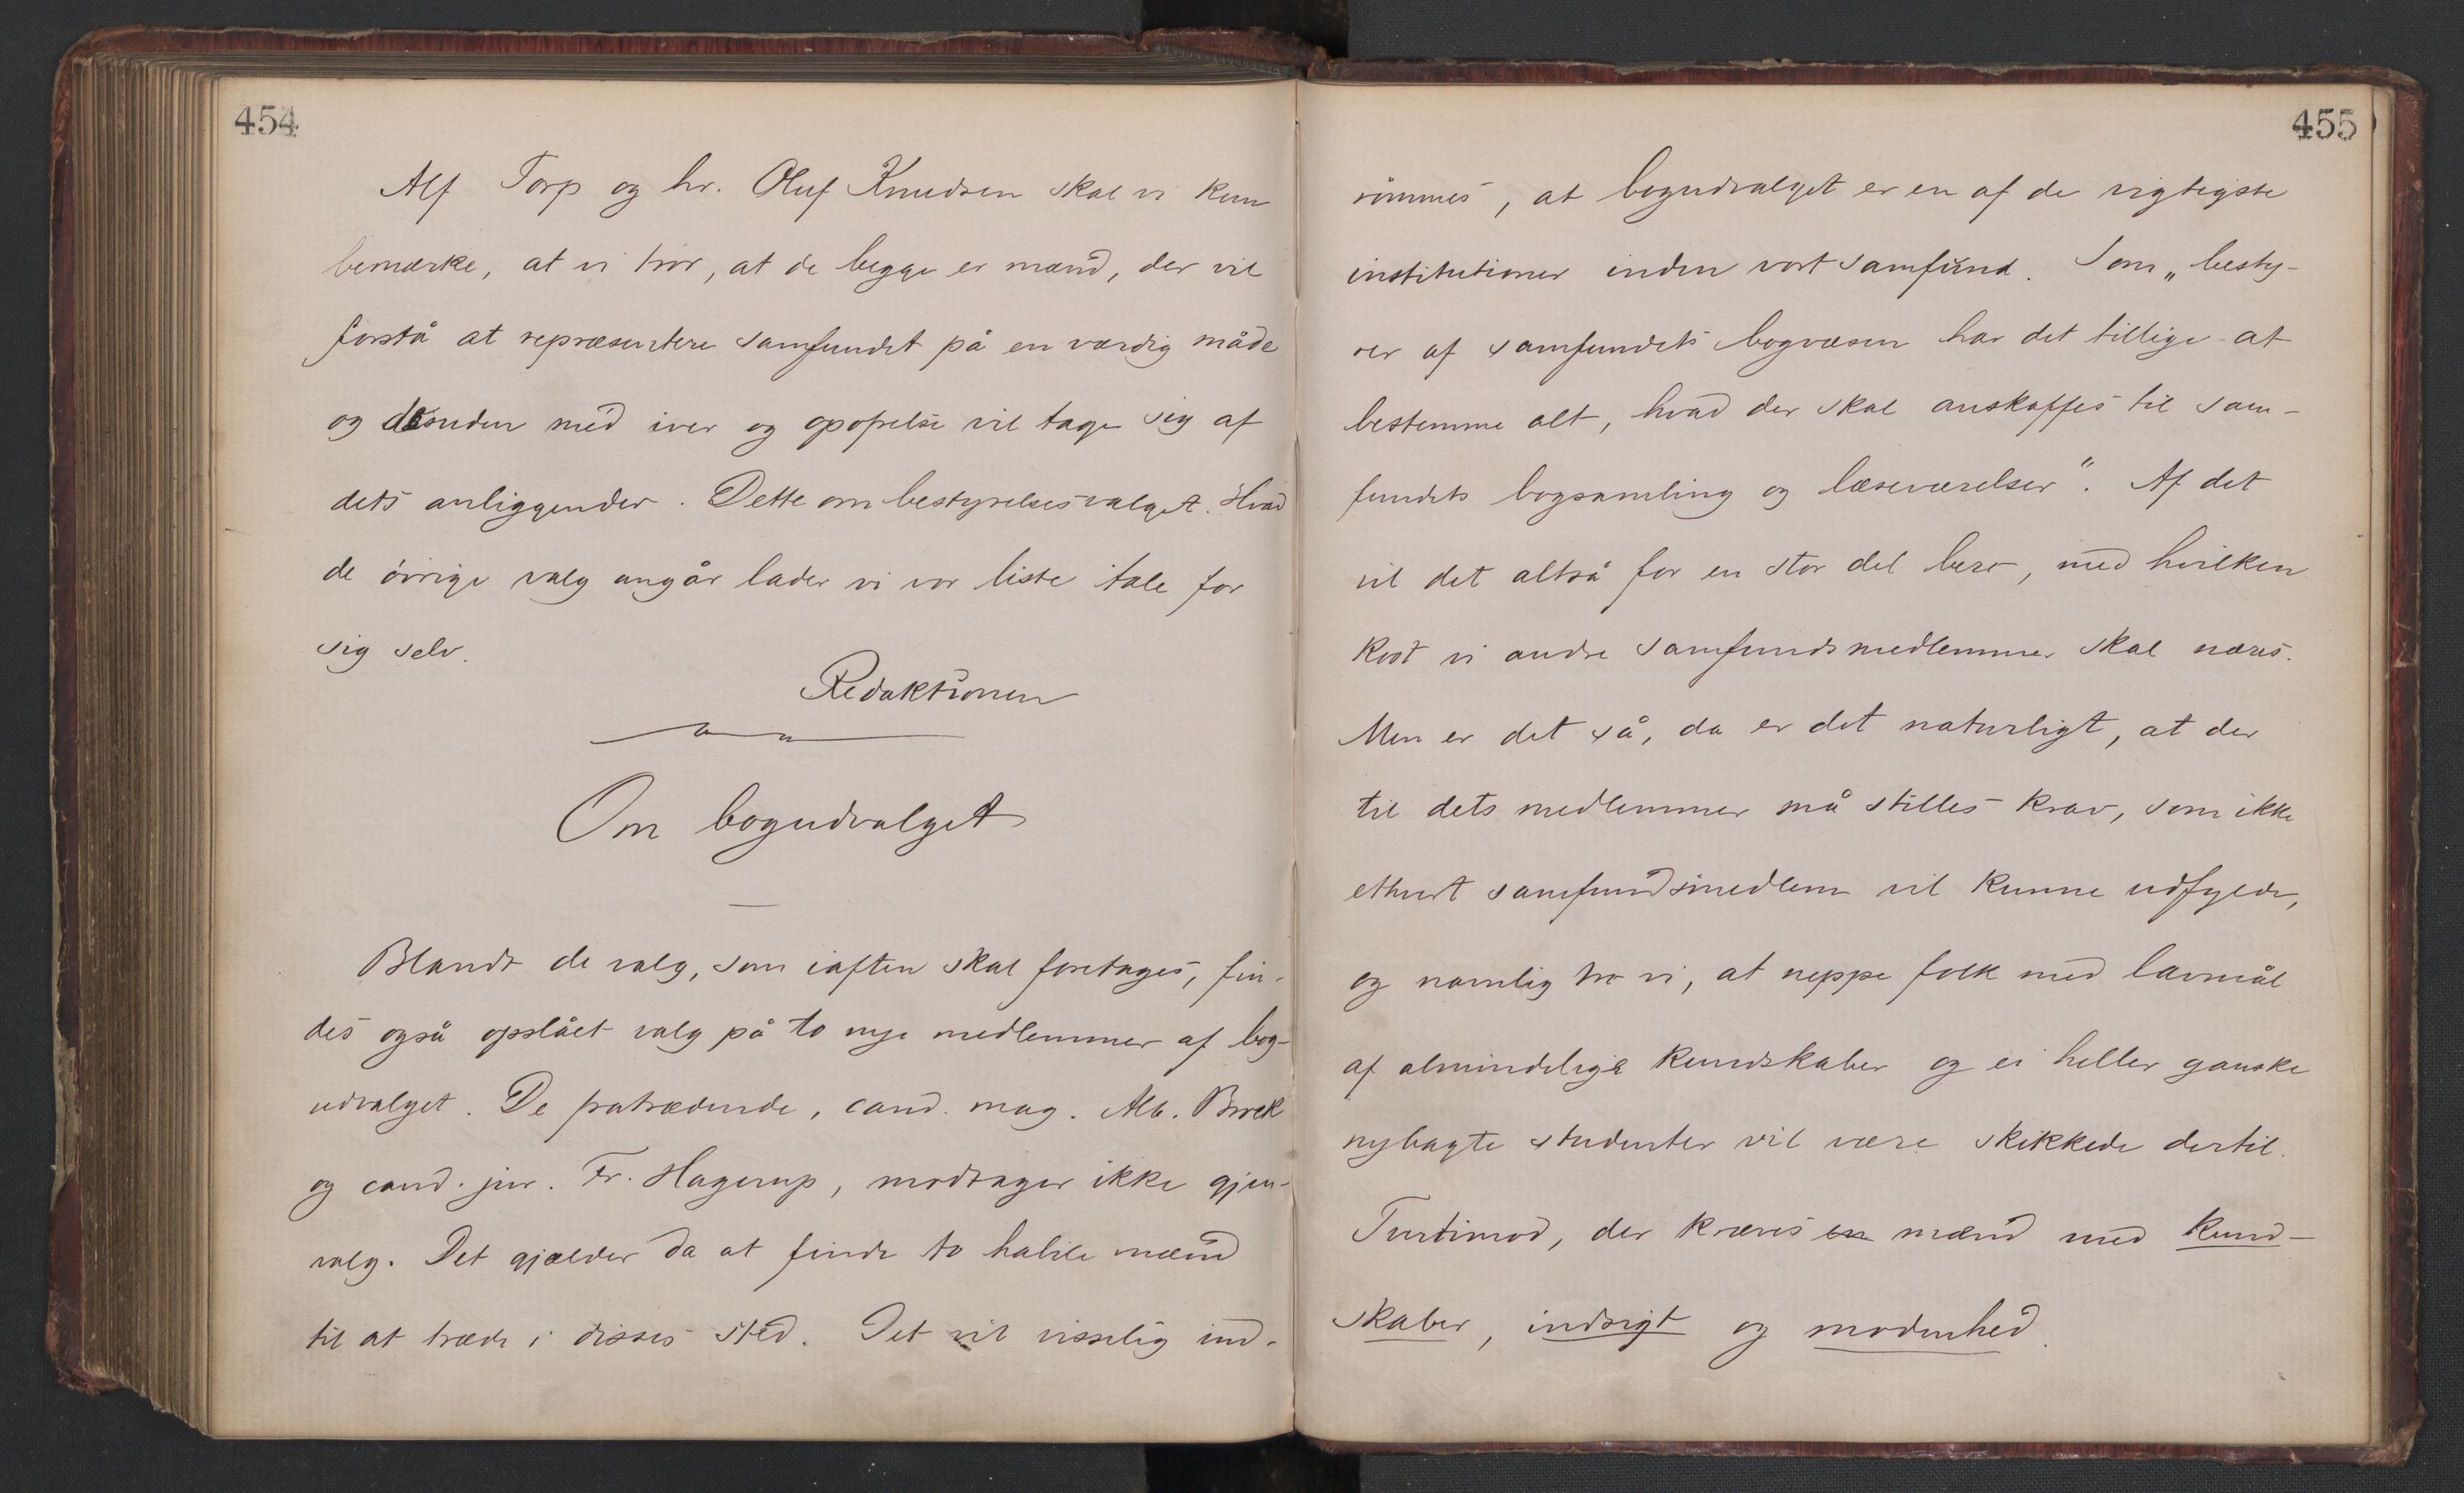 454
Alf Torp og hr. Oluf Knudsen skal vi kun
bemærke, at vi tror, at de begge er mænd, der vil
forstå at repræsentere samfundet på en værdig måde
og desuden med iver og opofrelse vil tage sig af
dets anliggender. Dette om bestyrelsesvalget. Hvad
de övrige valg angår lader vi vor liste tale for
sig selv.
Redaktionen
Om bogudvalget
Blandt de valg, som iaften skal foretages, fin-
des også opslået valg på to nye medlemmer af bog-
udvalget. De fratrædende, cand. mag. Alb. Brock
og cand. jur. Fr. Hagerup, modtager ikke gjen-
valg. Det gjælder da at finde to habile mænd
til at træde i disses sted. Det vil visselig ind-
455
römmes, at bogudvalget er en af de vigtigste
institutioner inden vort samfund. Som „besty-
rer af samfundets bogvæsen har det tillige at
bestemme alt, hvad der skal anskaffes til sam-
fundets bogsamling og læseværelser“. Af det
vil det altså for en stor del bero, med hvilken
kost vi andre samfundsmedlemmer skal næres.
Men er det så, da er det naturligt, at der
til dets medlemmer må stilles krav, som ikke
ethvert samfundsmedlem vil kunne udfylde,
og navnlig tro vi, at neppe folk med lavmål
af almindelige kundskaber og ei heller ganske
nybagte studenter vil være skikkede dertil.
Tvertimod, der kræves en mænd med kund-
skaber, indsigt og modenhed.